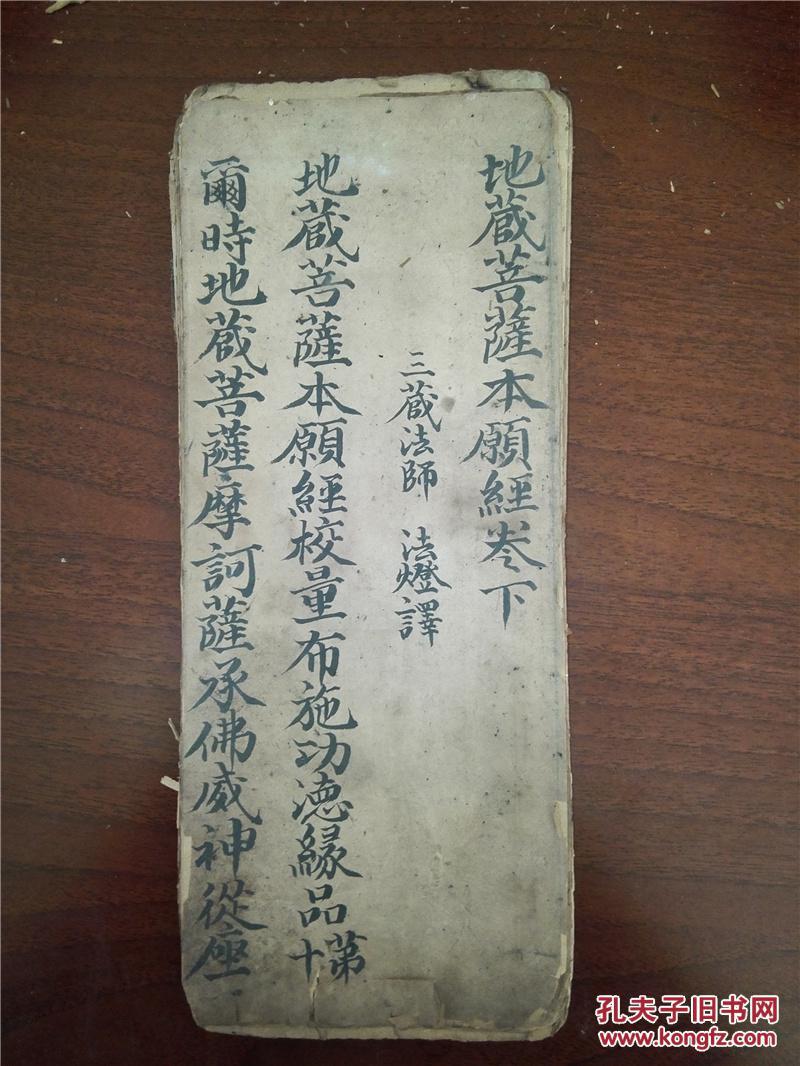 地藏菩薩本願經卷下
三藏法師 法燈譯
地藏菩薩本願經校量布施功德緣品第十
爾時地藏菩薩摩訶薩承佛威神從座
孔夫子旧书网
www.kongfz.com